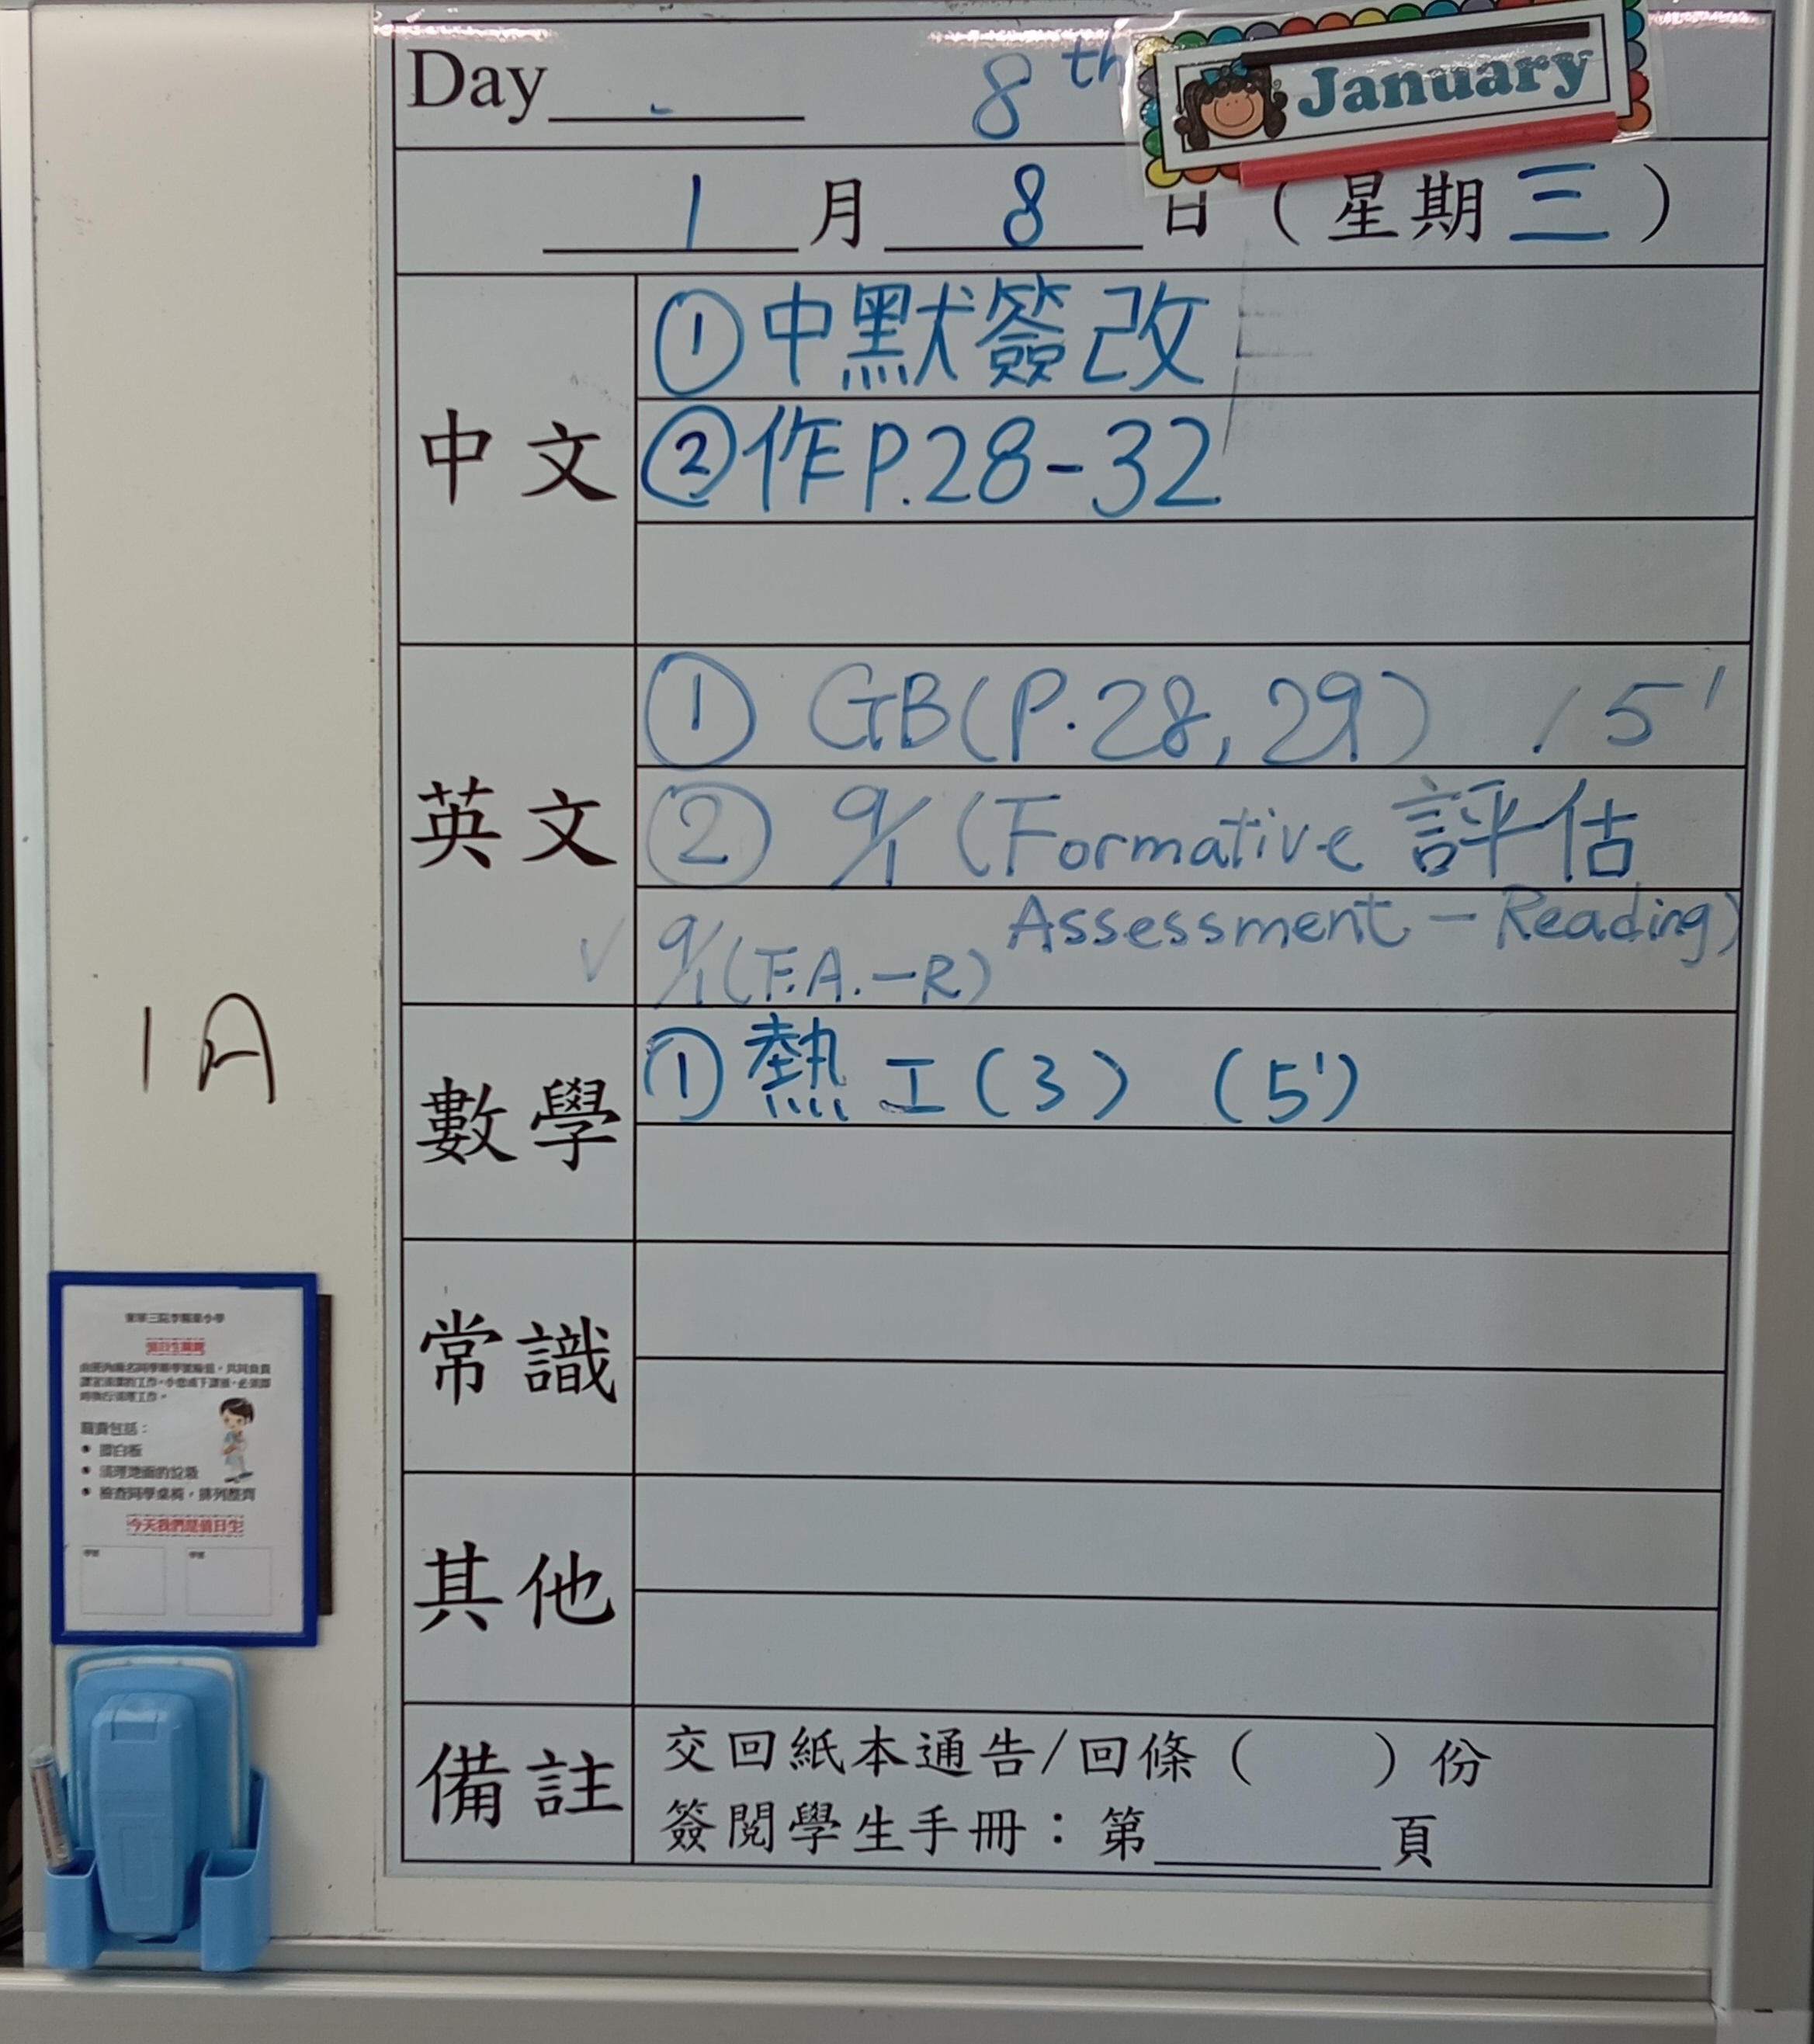 Day 8th January
1月8日(星期三)
中文
①中默簽改
②作P.28-32
英文
① GB(P.28,29) / 5'
② 9/1 (Formative 評估
Assessment - Reading)
✓ 9/1(F.A.-R)
數學
①熱工(3) (5')
常識
其他
備註
交回紙本通告/回條( )份
簽閱學生手冊:第______頁
1A
值日生職責
職責包括:
• 擦白板
• 清理地面的垃圾
• 檢查同學桌椅,排列整齊
今天我們是值日生
學號 學號